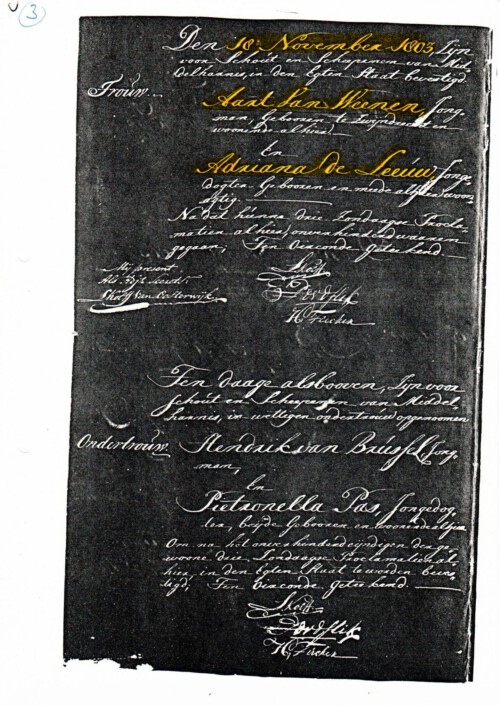 3
Den 18e November 1803 Zijn
voor Schout en Schepenen van Mid
delharnis, in den Egten Staat bevestigd
Trouw.
Aart van Weenen, Jong-
man, Gebooren te Zwijndrecht en
woonende alhier
En
Adriana de Leeuw, Jonge
dogter Gebooren en mede alhier woon
agtig.
Na dat hunne drie Zondaagse Procla
matien alhier, onverhinderd waaren
gegaan; Ten Oirconde geteekend.
Mij present
Als
van Oosterwijk
Ten daage alsbooven, Zijn voor
Schout en Schepenen van Middel-
harnis, in wettigen ondertrouw opgenoomen
Ondertrouw.
Hendrik van Brussel, Jong-
man,
En
Pietronella Pas, Jongedog-
ter, beijde Gebooren en woonende alhier
Om na het onverhinderd eijndigen der ge-
woone drie, Zondaagse Proclamatien al-
hier, in den Egten Staat te worden beves-
tigd; Ten Oirconde geteekend.